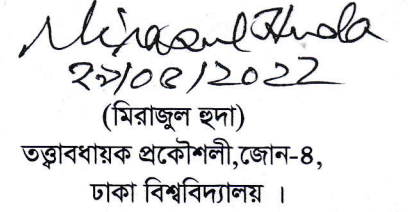 Mirazul Huda
২৯/০৫/2022
(মিরাজুল হুদা)
তত্ত্বাবধায়ক প্রকৌশলী,জোন-৪,
ঢাকা বিশ্ববিদ্যালয় ।